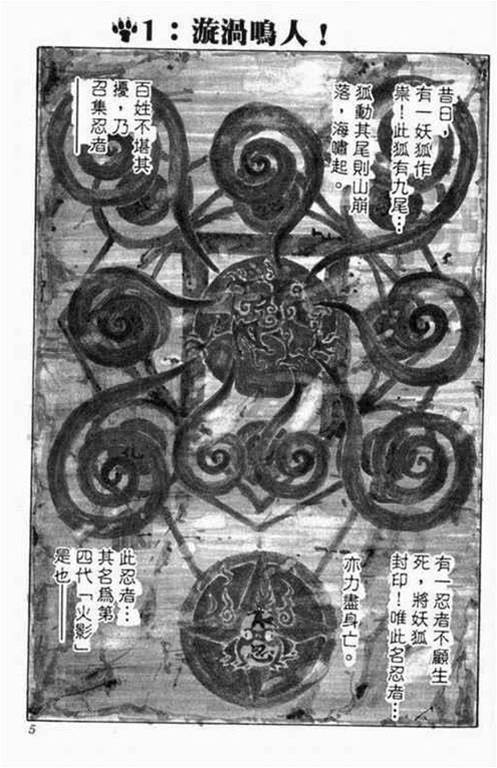 1：漩渦鳴人！
昔日，
有一妖狐作
祟！此狐有九尾…
狐動其尾則山崩
落，海嘯起。
百姓不堪其
擾，乃
召集忍者——
有一忍者不顧生
死，將妖狐
封印！唯此名忍者…
亦力盡身亡。
此忍者…
其名為第
四代「火影」
是也——
忍
5